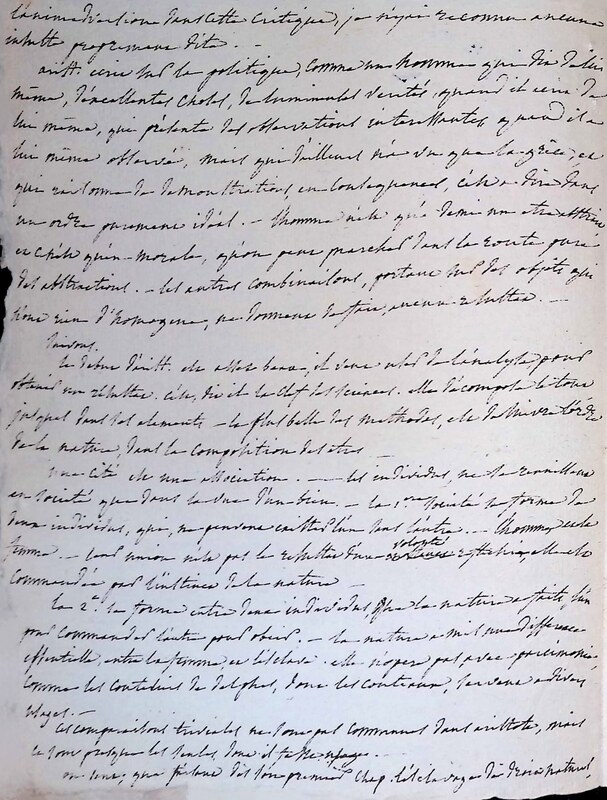 l'animadversion dans cette critique, je n'y ai reconnu aucune
insulte proprement dite. —
arist. écrit sur la politique, comme un homme qui dit de lui
même, d'excellentes choses, de lumineuses vérités, quand il écrit de
lui même, qui présente des observations intéressantes, quand il a
lui même observé, mais qui d'ailleurs n'a vu que la grèce, et
qui raisonne de démonstrations, en conséquences, c'est à dire dans
un ordre purement idéal. — l'homme n'est qu'à demi un être abstrait
et c'est qu'en morale, qu'on peut marcher dans la route pure
des abstractions. — les autres combinaisons, portant sur des objets qui
n'ont rien d'homogène, ne donnent de fait, aucun résultat. —
lisons.
le début d'arist. est assez beau, il veut user de l'analyse, pour
obtenir un résultat. c'est, dit-il la clef des sciences. elle décompose le tout
jusques dans ses elements — la plus belle des methodes, est de suivre l'ordre
de la nature, dans la composition des etres —
une cité est une association. — les individus, ne se réunissent
en société que dans la vue d'un bien. — la 1ere société se forme de
deux individus, qui, ne peuvent exister l'un sans l'autre. — l'homme et la
femme. — leur union n'est pas le résultat d'une volonté réfléchie, elle est
commandée par l'instinct de la nature —
la 2e. se forme entre deux individus que la nature a faits, l'un
pour commander l'autre pour obéir. — la nature a mis une différence
essentielle, entre la femme, et l'esclave. elle n'opère pas avec parcimonie
comme les couteliers de delphes, dont les couteaux, servent à divers
usages. —
ces comparaisons triviales ne sont pas communes dans aristote, mais
ce sont presque les seules, dont il fasse usage.
on sent, que partant dès son premier chap. de l'esclavage de droit naturel,